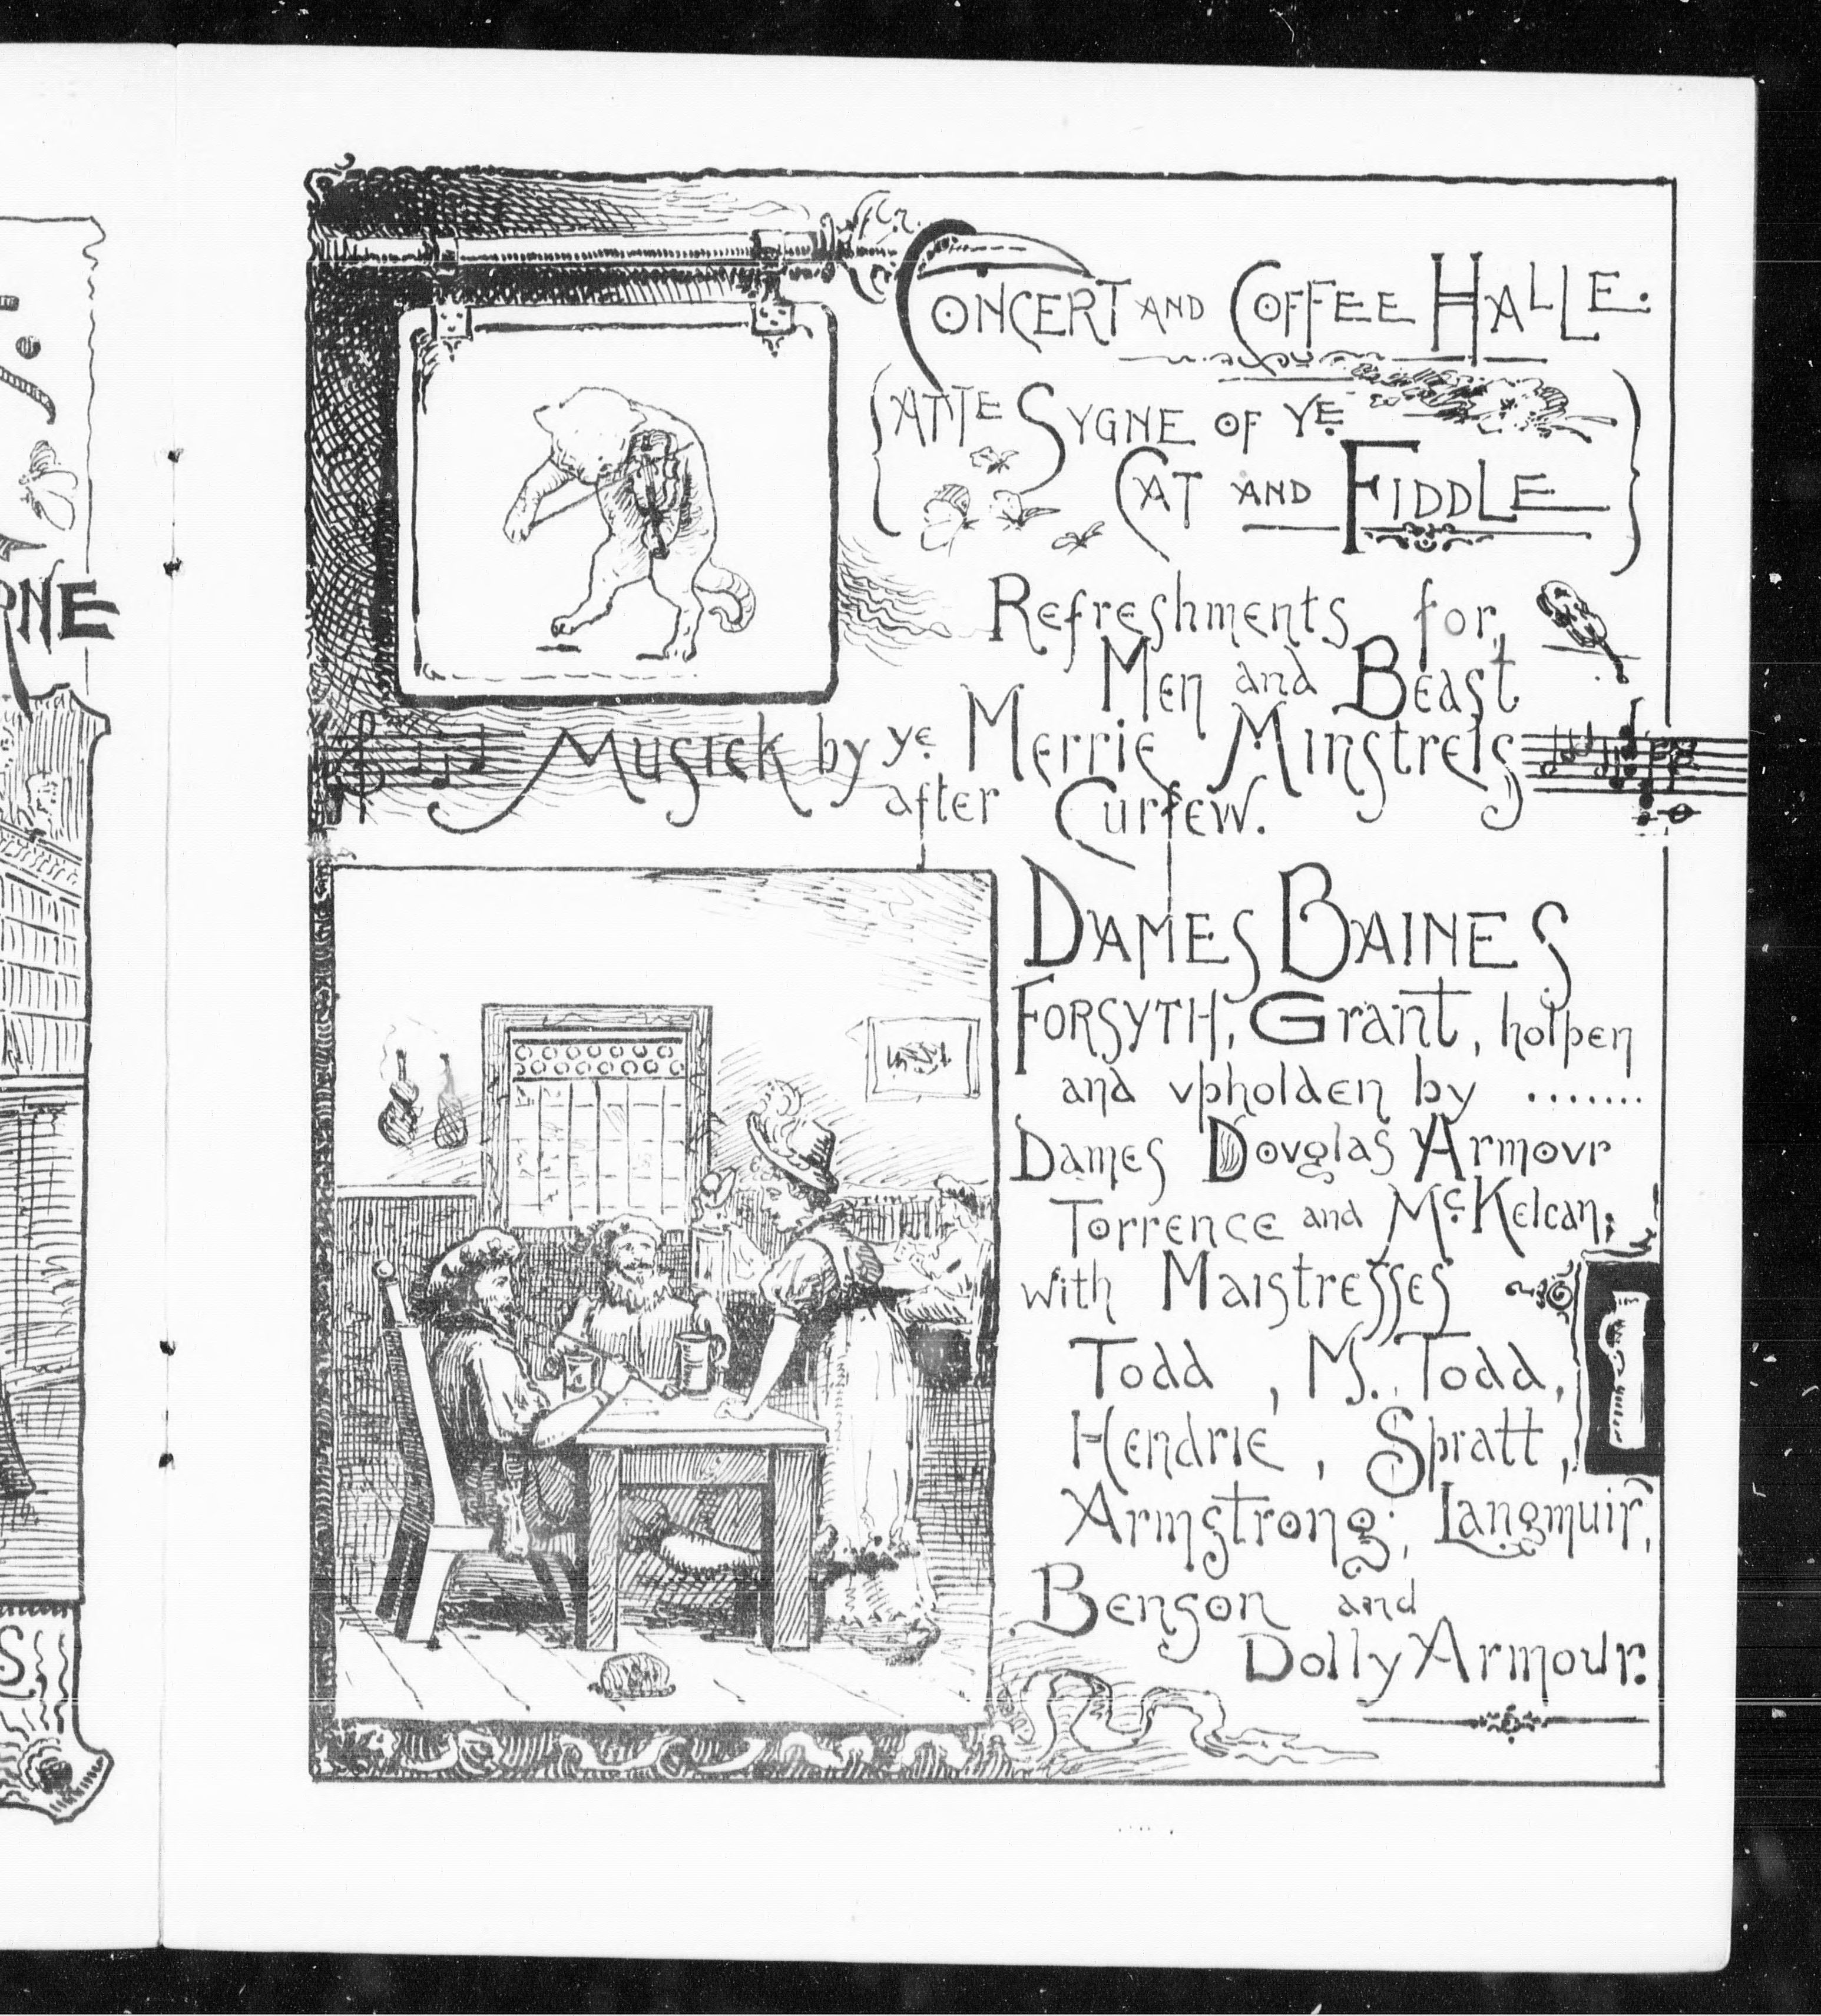 RNE
S
CONCERT AND COFFEE HALLE.
ATTE SYGNE OF YE
CAT AND FIDDLE
Refreshments for
Men and Beast
Musick by ye Merrie Minstrels
after Curfew.
DAMES BAINES
FORSYTH, Grant, holpen
and vpholden by .......
Dames Dovglas Armovr
Torrence and McKelcan,
with Maistresses
Todd, M. Todd,
Hendrie, Spratt,
Armstrong, Langmuir,
Benson and
Dolly Armour.